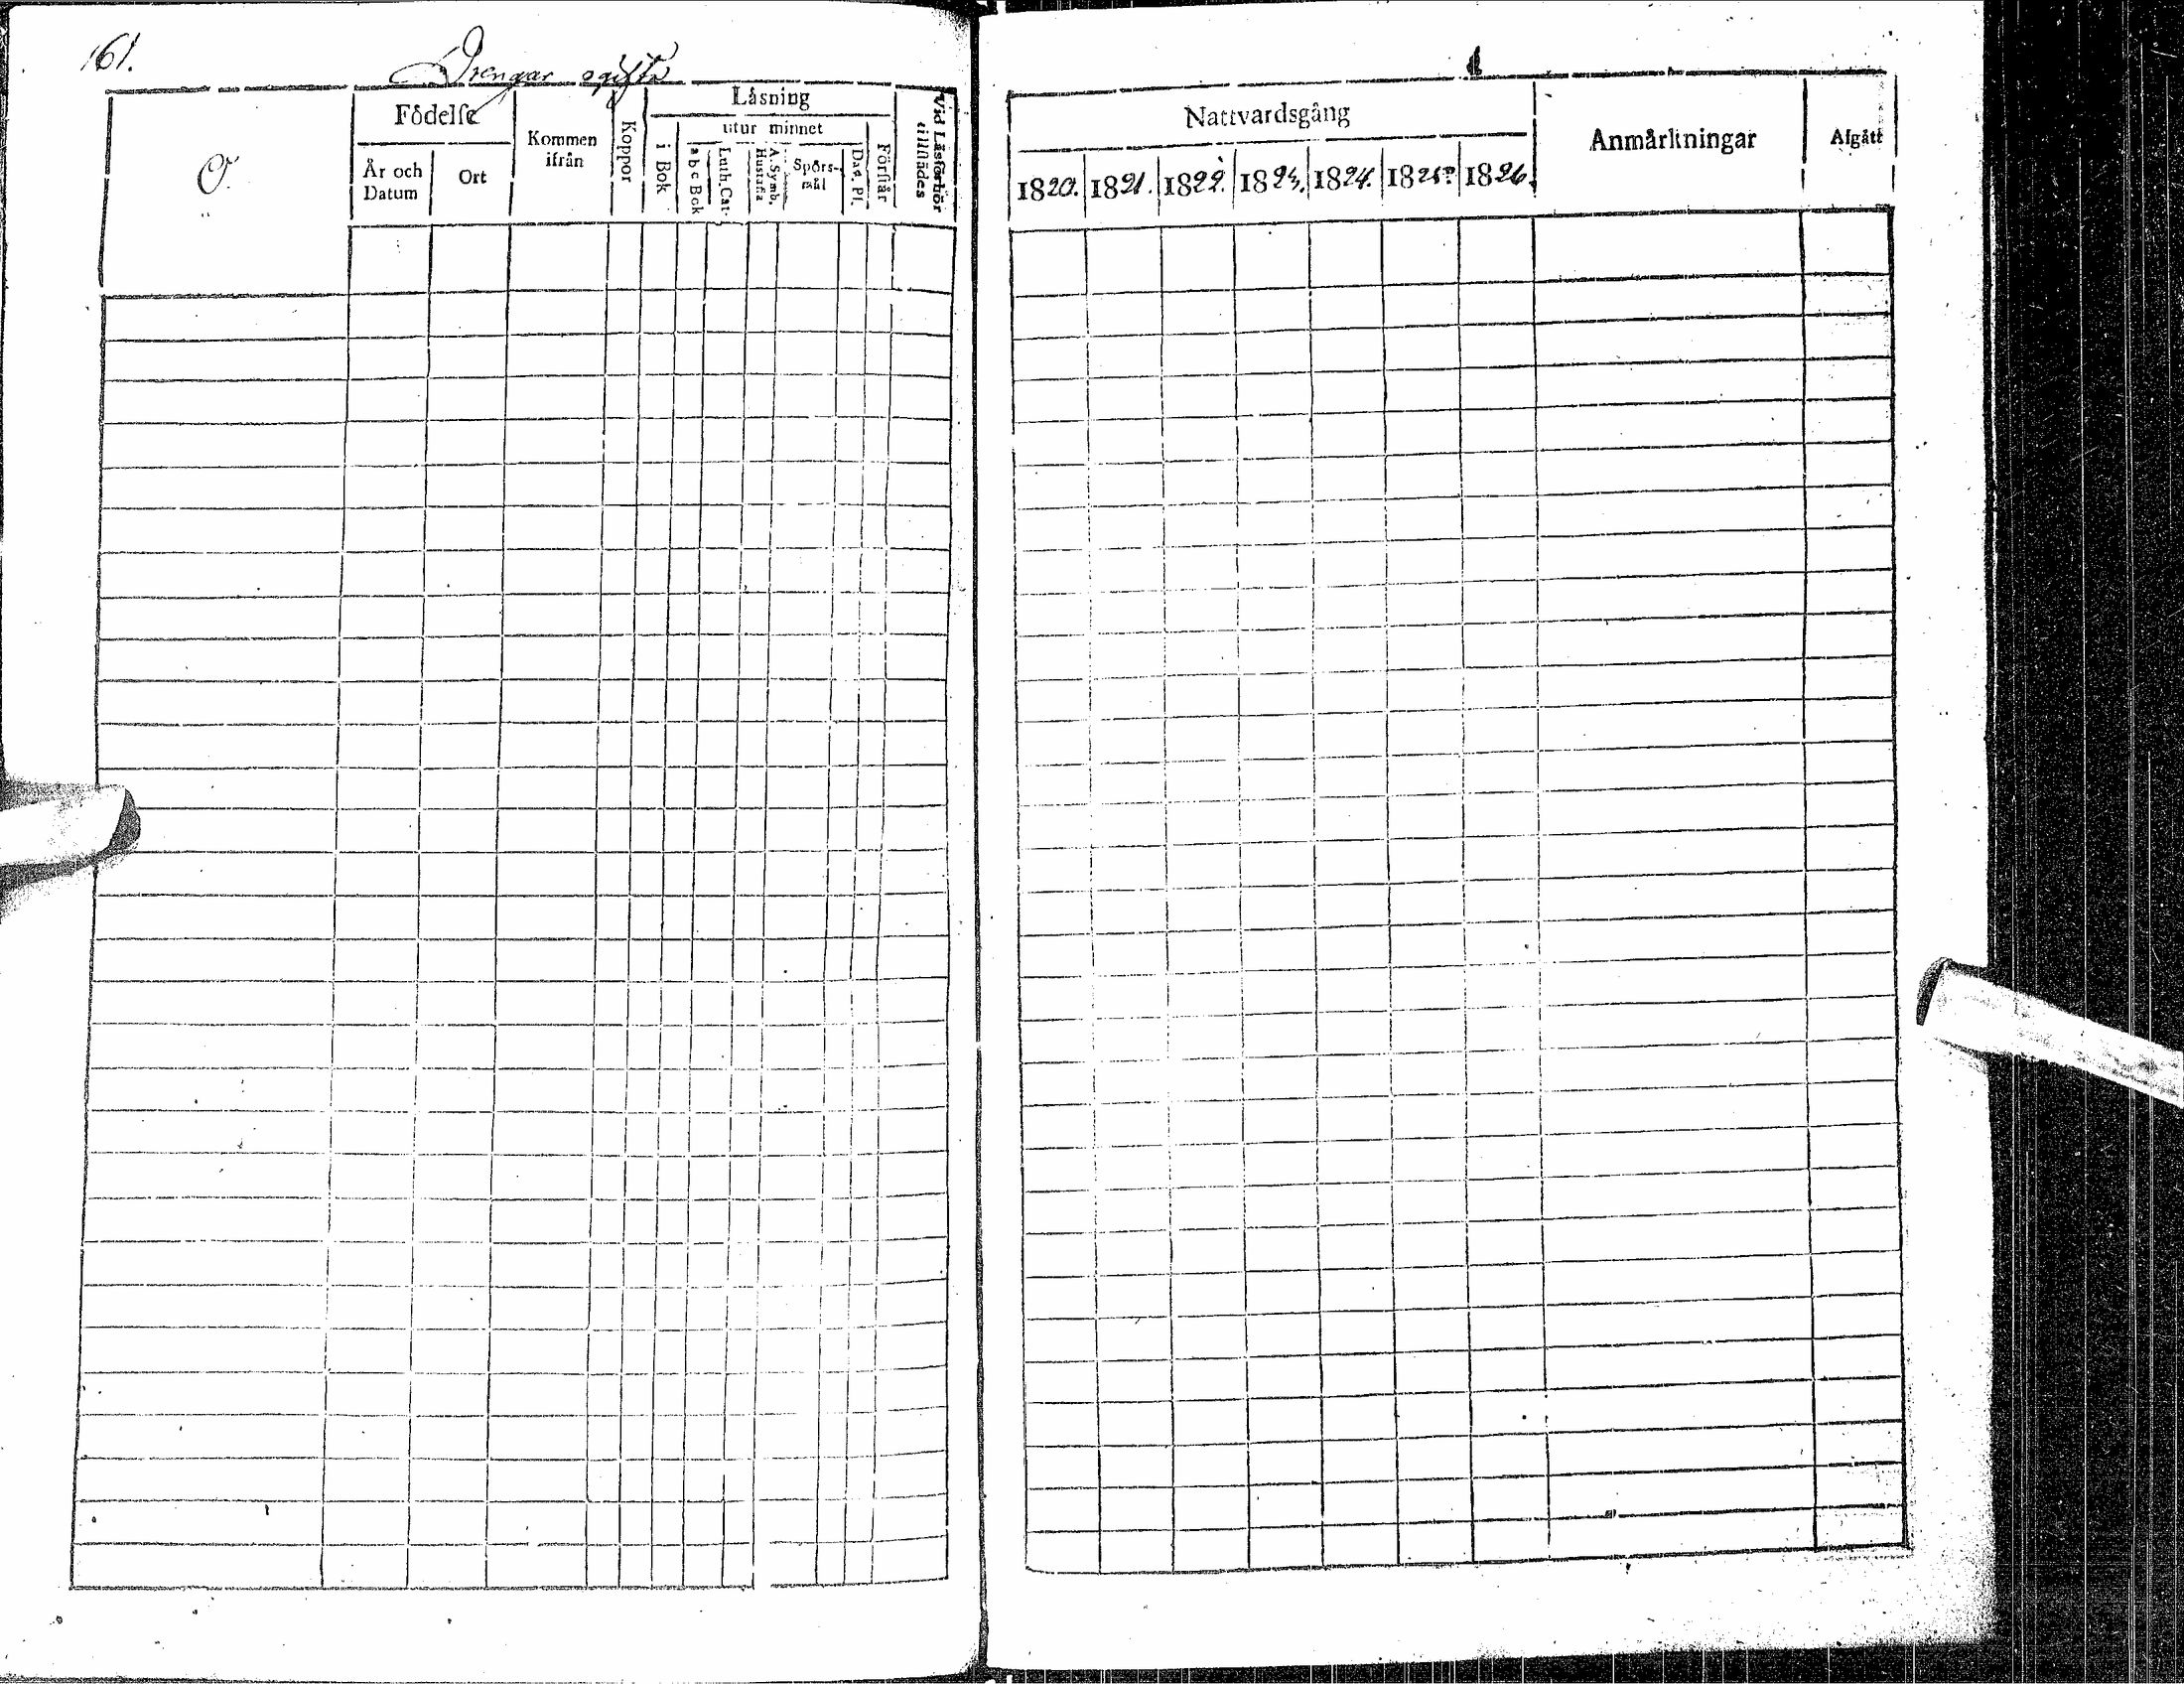 161.
Drengar ogifta
O.
Födelse
År och Datum
Ort
Kommen ifrån
Koppor
Läsning
i Bok
utur minnet
a b c Bok
Luth. Cat.
A. Symb. Hustafla
Spörs-mål
Dav. Pl.
Förstår
Vid Läsförhör tillstädes
Nattvardsgång
1820. 1821. 1822. 1823. 1824. 1825. 1826.
Anmärkningar
Afgått